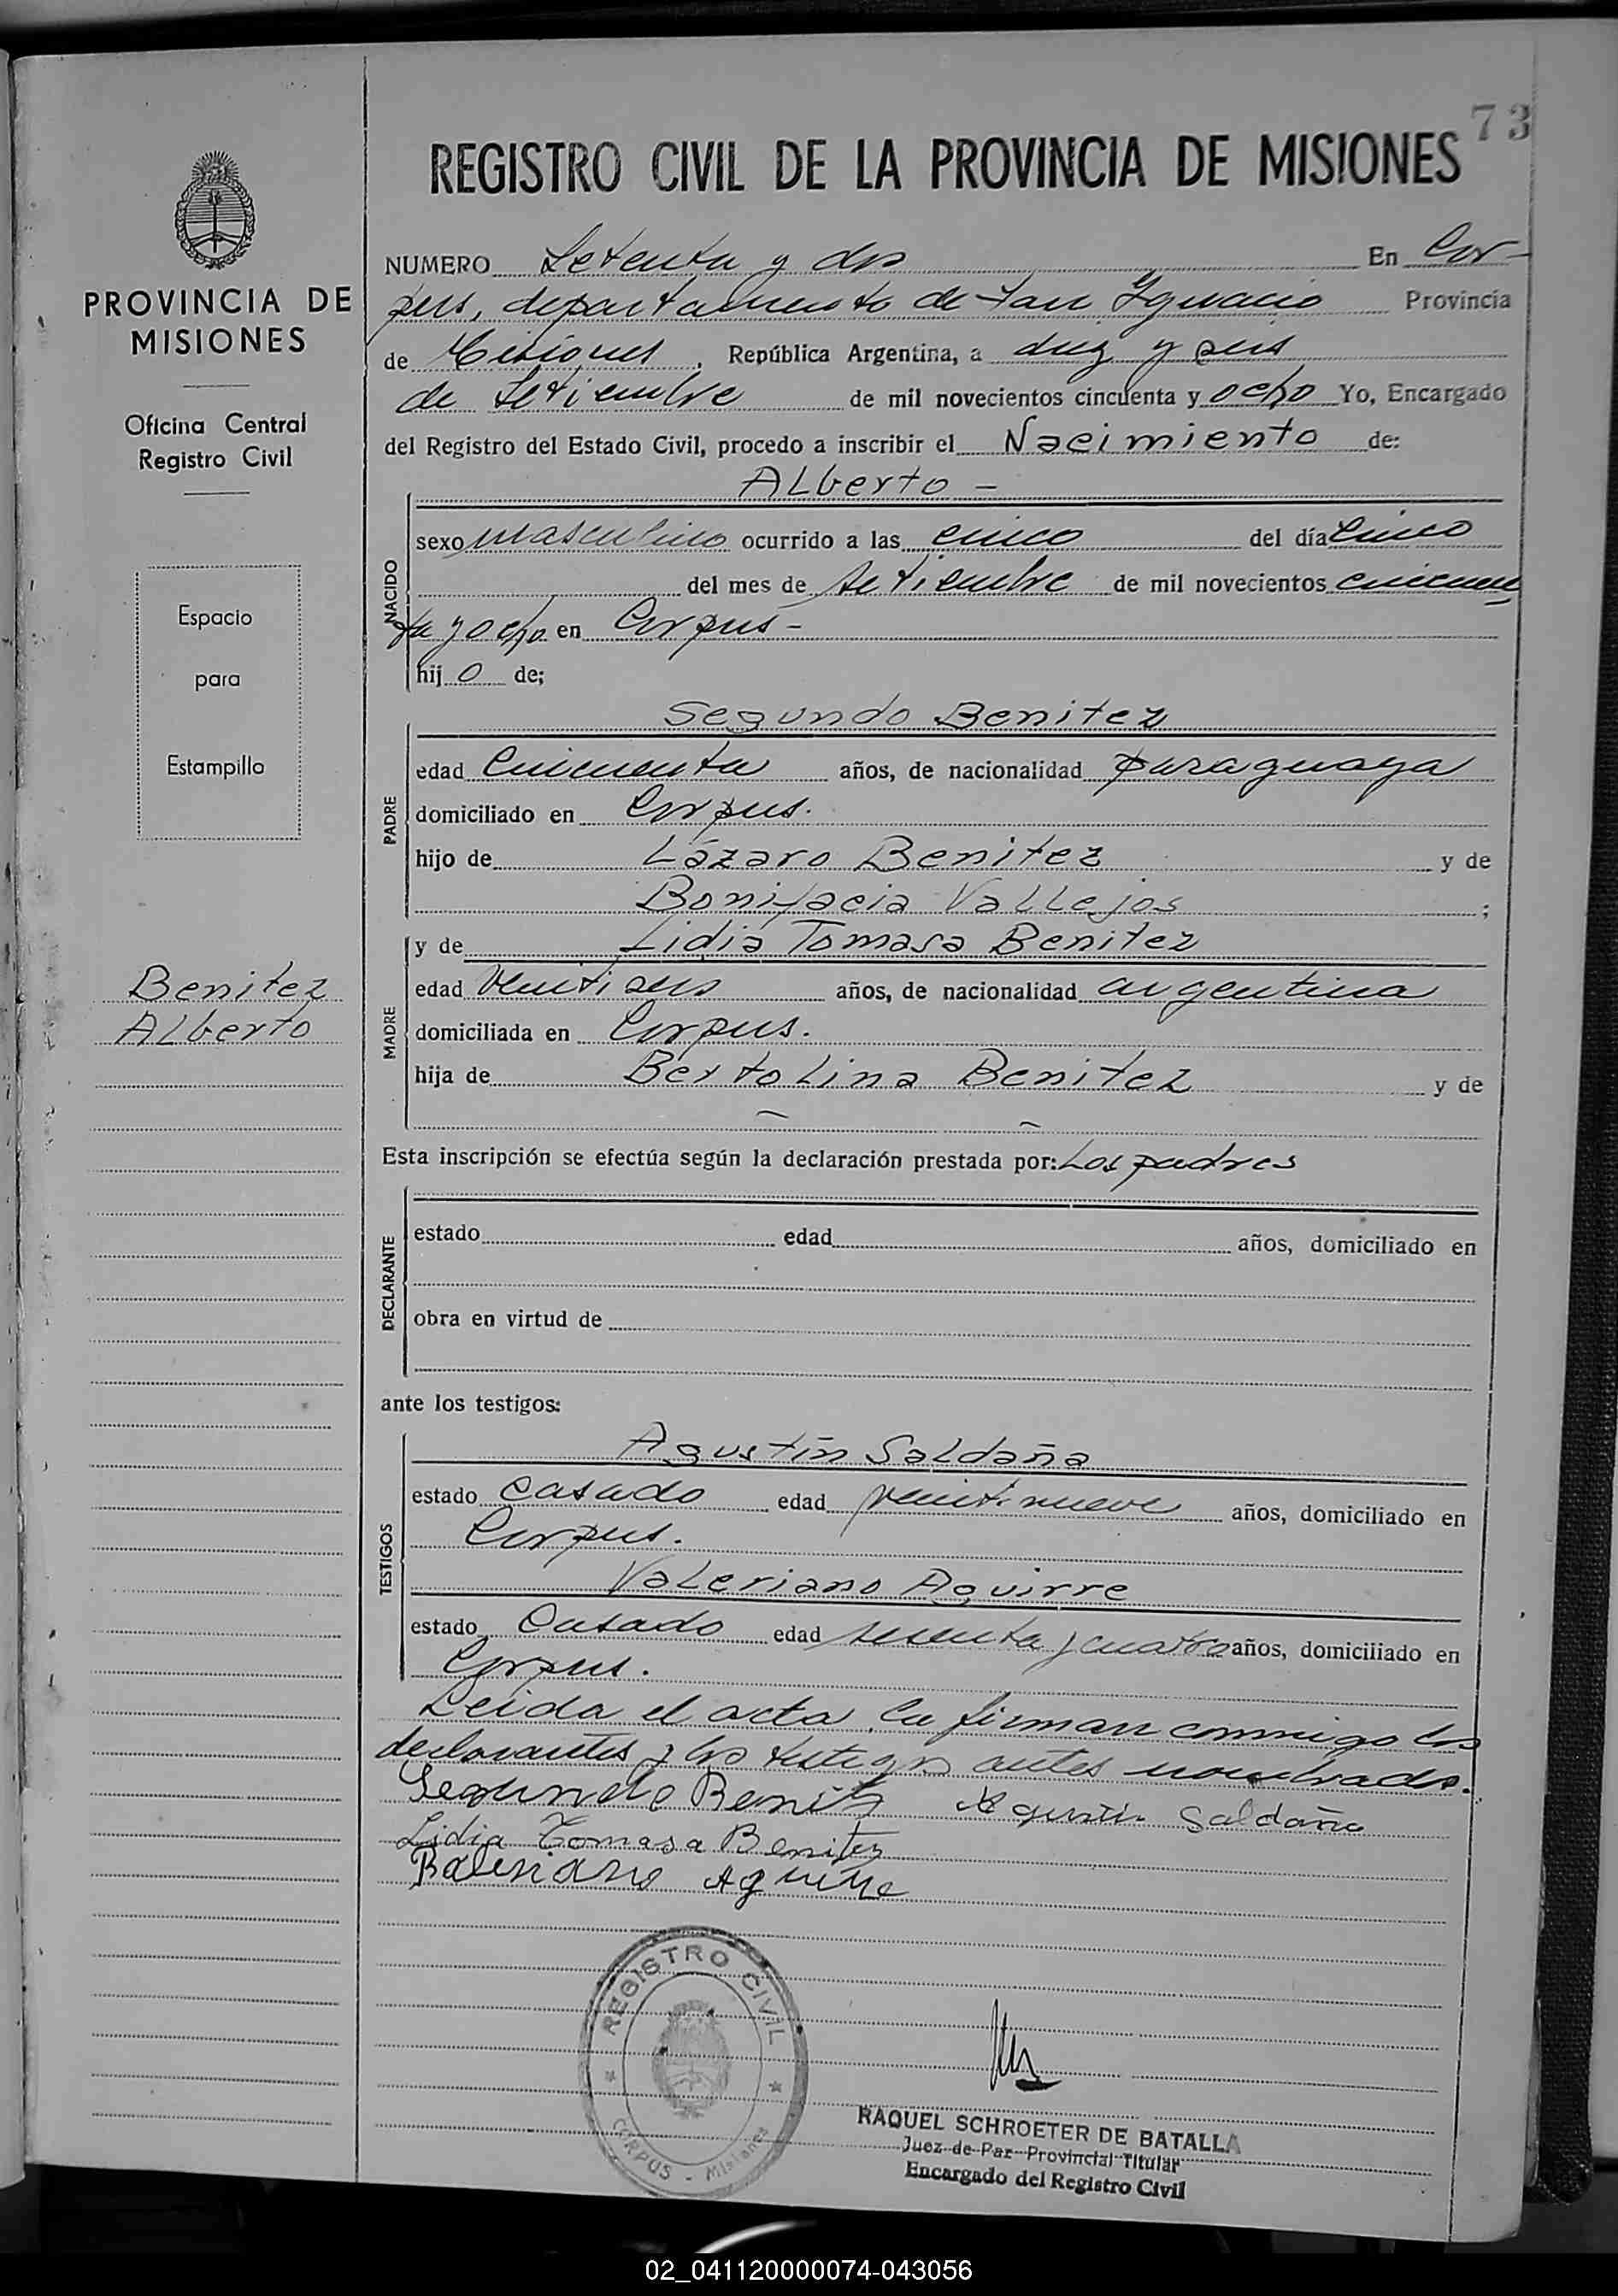 73
REGISTRO CIVIL DE LA PROVINCIA DE MISIONES
PROVINCIA DE
MISIONES
Oficina Central
Registro Civil
Espacio
para
Estampilla
Benitez
Alberto
NUMERO Setenta y dos En Cor-
pus, departamento de San Ignacio Provincia
de Misiones, República Argentina, a diez y seis
de Setiembre de mil novecientos cincuenta y ocho Yo, Encargado
del Registro del Estado Civil, procedo a inscribir el Nacimiento de:
Alberto -
NACIDO
sexo masculino ocurrido a las cinco del día cinco
del mes de setiembre de mil novecientos cincuen
ta y ocho en Corpus -
hij o de;
Segundo Benitez
PADRE
edad Cincuenta años, de nacionalidad paraguaya
domiciliado en Corpus.
hijo de Lázaro Benitez y de
Bonifacia Vallejos ;
y de Lidia Tomasa Benitez
MADRE
edad veintiseis años, de nacionalidad argentina
domiciliada en Corpus.
hija de Bertolina Benitez y de
Esta inscripción se efectúa según la declaración prestada por: Los padres
DECLARANTE
estado edad años, domiciliado en
obra en virtud de
ante los testigos:
TESTIGOS
Agustín Saldaña
estado Casado edad veintinueve años, domiciliado en
Corpus.
Valeriano Aguirre
estado Casado edad sesenta y cuatro años, domiciliado en
Corpus.
Leida el acta, la firman conmigo los
declarantes y los testigos antes nombrados.
Segundo Benitz Agustin Saldaña
Lidia Tomasa Benitez
Baleriano Aguirre
REGISTRO CIVIL
CORPUS - Misiones
RAQUEL SCHROETER DE BATALLA
Juez de Paz Provincial Titular
Encargado del Registro Civil
02_041120000074-043056